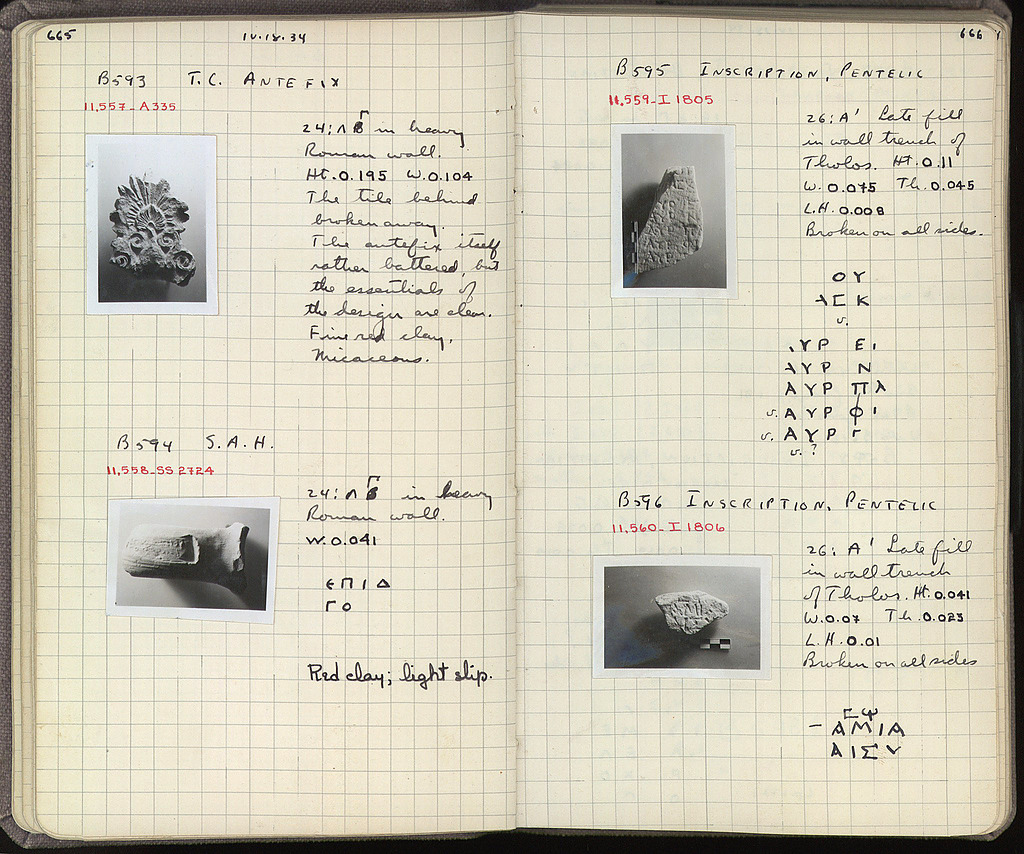 665
IV.18.34
B593 T.C. ANTEFIX
11,557-A335
24: Λ in heavy
Roman wall.
Ht. 0.195 W. 0.104
The tile behind
broken away.
The antefix itself
rather battered, but
the essentials of
the design are clear.
Fine red clay,
Micaceous.
B594 S.A.H.
11,558-SS 2724
24: Λ in heavy
Roman wall.
W. 0.041
ЄΠΙΔ
ΓΟ
Red clay; light slip.
666
B595 INSCRIPTION, PENTELIC
11,559-I 1805
26: A' Late fill
in wall trench of
Tholos. Ht. 0.11
W. 0.075 Th. 0.045
L.H. 0.008
Broken on all sides.
ΟΥ
ΕΚ
v.
ΥΡ ΕΙ
ΥΡ Ν
ΑΥΡ ΠΛ
v. ΑΥΡ ΦΙ
v. ΑΥΡ Γ
v. ?
B596 INSCRIPTION, PENTELIC
11,560-I 1806
26: A' Late fill
in wall trench
of Tholos. Ht. 0.041
W. 0.07 Th. 0.023
L.H. 0.01
Broken on all sides
ΕΨ
– ΑΜΙΑ
ΑΙΣΥ